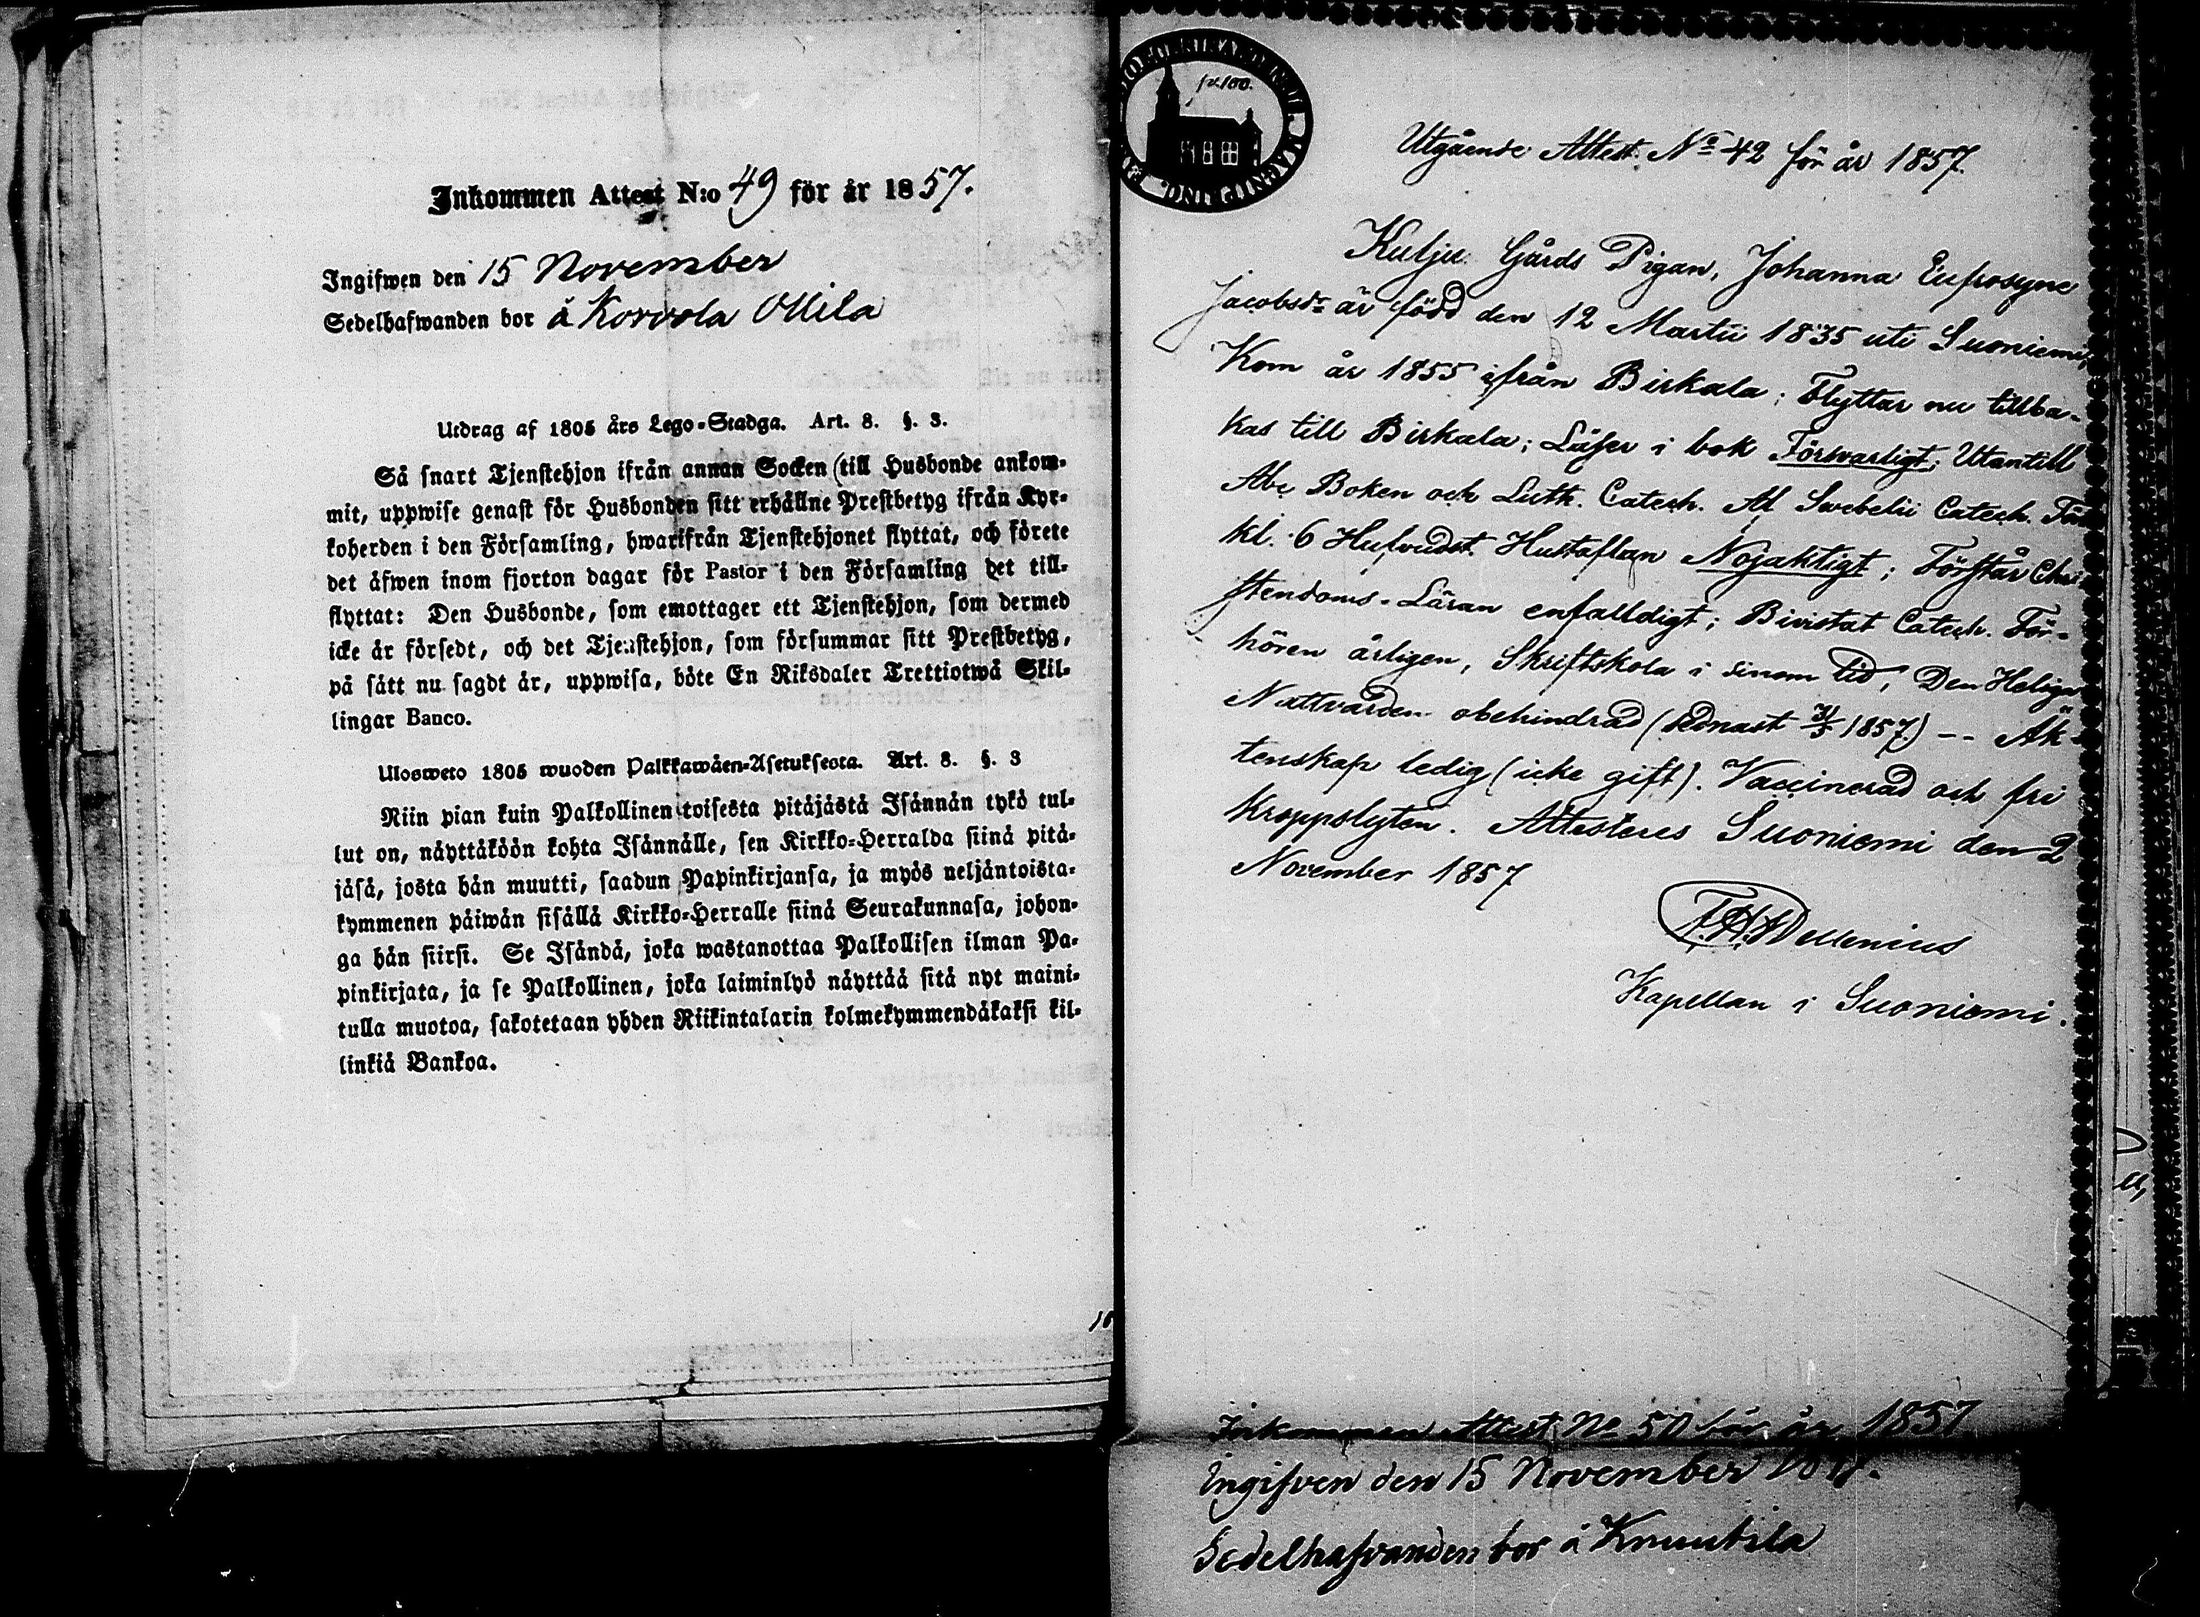 Inkommen Attest N:o 49 för år 1857.
Ingifwen den 15 November
Sedelhafwanden bor å Korvola Ollila
Utdrag af 1805 års Lego-Stadga. Art. 8. §. 3.
Så snart Tjenstehjon ifrån annan Socken (till Husbonde ankom-
mit, uppwise genast för Husbonden sitt erhållne Prestbetyg ifrån Kyr-
koherden i den Församling, hwarifrån Tjenstehjonet flyttat, och förete
det äfwen inom fjorton dagar för Pastor i den Församling det till-
flyttat: Den Husbonde, som emottager ett Tjenstehjon, som dermed
icke är försedt, och det Tjenstehjon, som försummar sitt Prestbetyg,
på sätt nu sagdt är, uppwisa, böte En Riksdaler Trettiotwå Skil-
lingar Banco.
Ulosweto 1805 wuoden Palkkawäen-Asetuksesta. Art. 8. §. 3
Niin pian kuin Palkollinen toisesta pitäjästä Isännän tykö tul-
lut on, näyttäköön kohta Isännälle, sen Kirkko-Herralda siinä pitä-
jäsä, josta hän muutti, saadun Papinkirjansa, ja myös neljäntoista-
kymmenen päiwän sisällä Kirkko-Herralle siinä Seurakunnasa, johon-
ga hän siirsi. Se Isändä, joka wastanottaa Palkollisen ilman Pa-
pinkirjata, ja se Palkollinen, joka laiminlyö näyttää sitä nyt maini-
tulla muotoa, sakotetaan yhden Riikintalarin kolmekymmendäkaksi kil-
linkiä Bankoa.
Utgående Attest No 42 för år 1857.
Kulju Gårds Pigan, Johanna Eufrosyne
Jacobsdr är född den 12 Martii 1835 uti Suoniemi,
Kom år 1855 ifrån Birkala; Flyttar nu tillba-
kas till Birkala; Läser i bok Försvarligt; Utantill
Abc Boken och Luth. Catech. All Svebelii Catech. För
kl. 6 Hufvudst. Hustaflan Nöjaktigt; Förstår Chri-
stendoms-Läran enfalldigt; Bivistat Catech. För-
hören årligen, Skriftskola i sinom tid, Den Heliga
Nattvarden obehindrad (sednast 1857.) -- Äk-
tenskap ledig (icke gift). Vaccinerad och fri
kroppslyten. Attesteres Suoniemi den 2
November 1857
Kapellan i Suoniemi.
Inkommen Attest No 50 för år 1857
Ingifven den 15 November 1857.
Sedelhafvanden bor å Knuutila